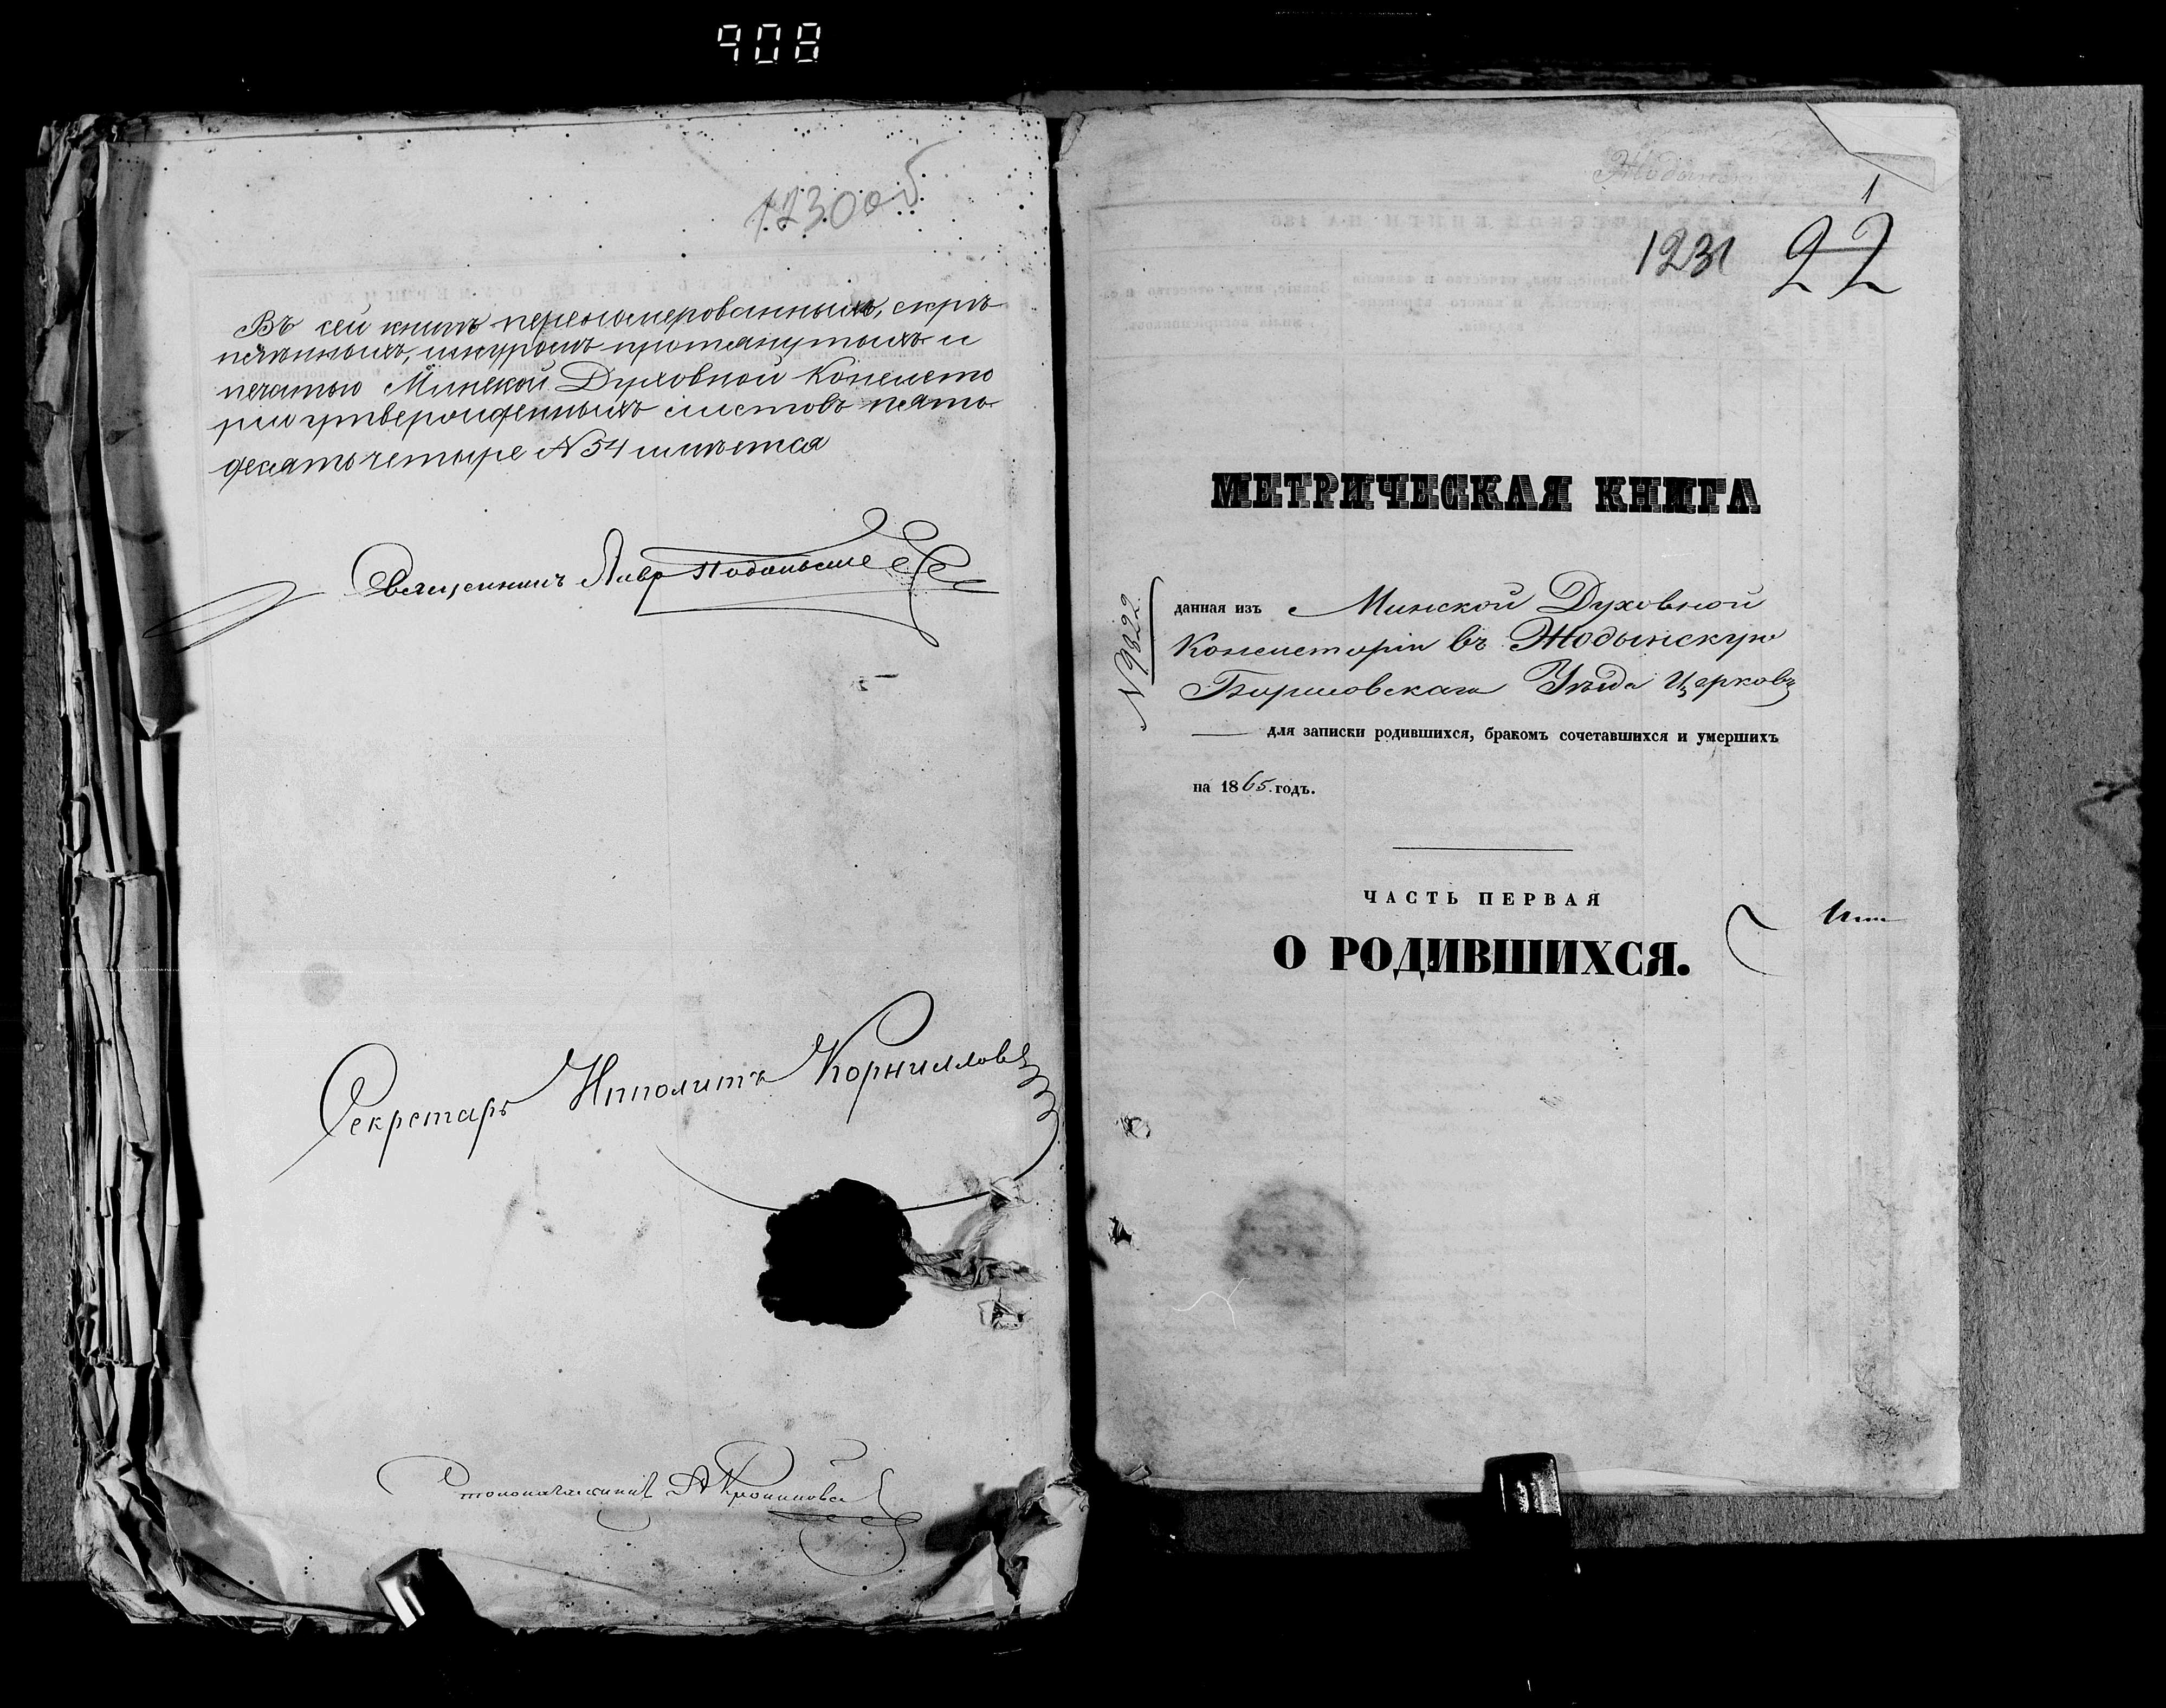 908
1230 об
Въ сей книгѣ перенумерованныхъ, скрѣ-
пленныхъ, шнуромъ протянутыхъ и
печатью Минской Духовной Консисто
ріи утвержденныхъ листовъ пять-
десятъ четыре № 54 имѣется
Священникъ
Секретарь Ипполитъ Корниллов
Столоначальникъ
1
1231 22
МЕТРИЧЕСКАЯ КНИГА
№ 9822
данная изъ Минской Духовной
Консисторіи въ Жодынскую
Борисовскаго Уѣзда Церковь
для записки родившихся, бракомъ сочетавшихся и умершихъ
на 1865 годъ.
ЧАСТЬ ПЕРВАЯ
О РОДИВШИХСЯ.